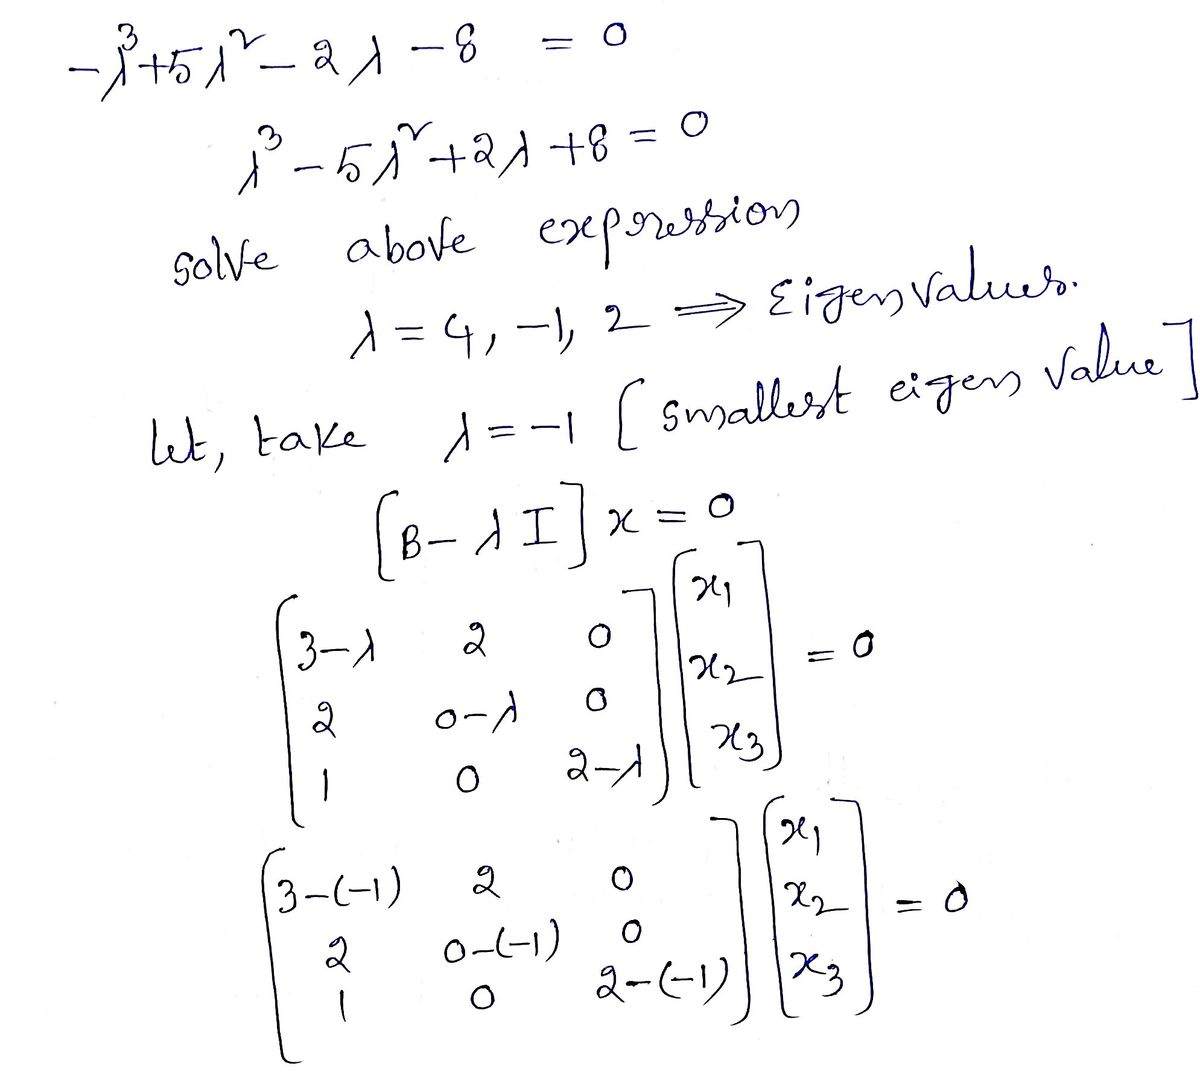 -λ³+5λ²-2λ-8 = 0
λ³-5λ²+2λ+8=0
solve above expression
λ=4, -1, 2 ⟹ Eigen values.
let, take λ=-1 [smallest eigen value]
[B-λI]x=0
[3-λ 2 0] [x₁]
[2 0-λ 0] [x₂] = 0
[1 0 2-λ] [x₃]
[3-(-1) 2 0] [x₁]
[2 0-(-1) 0] [x₂] = 0
[1 0 2-(-1)] [x₃]